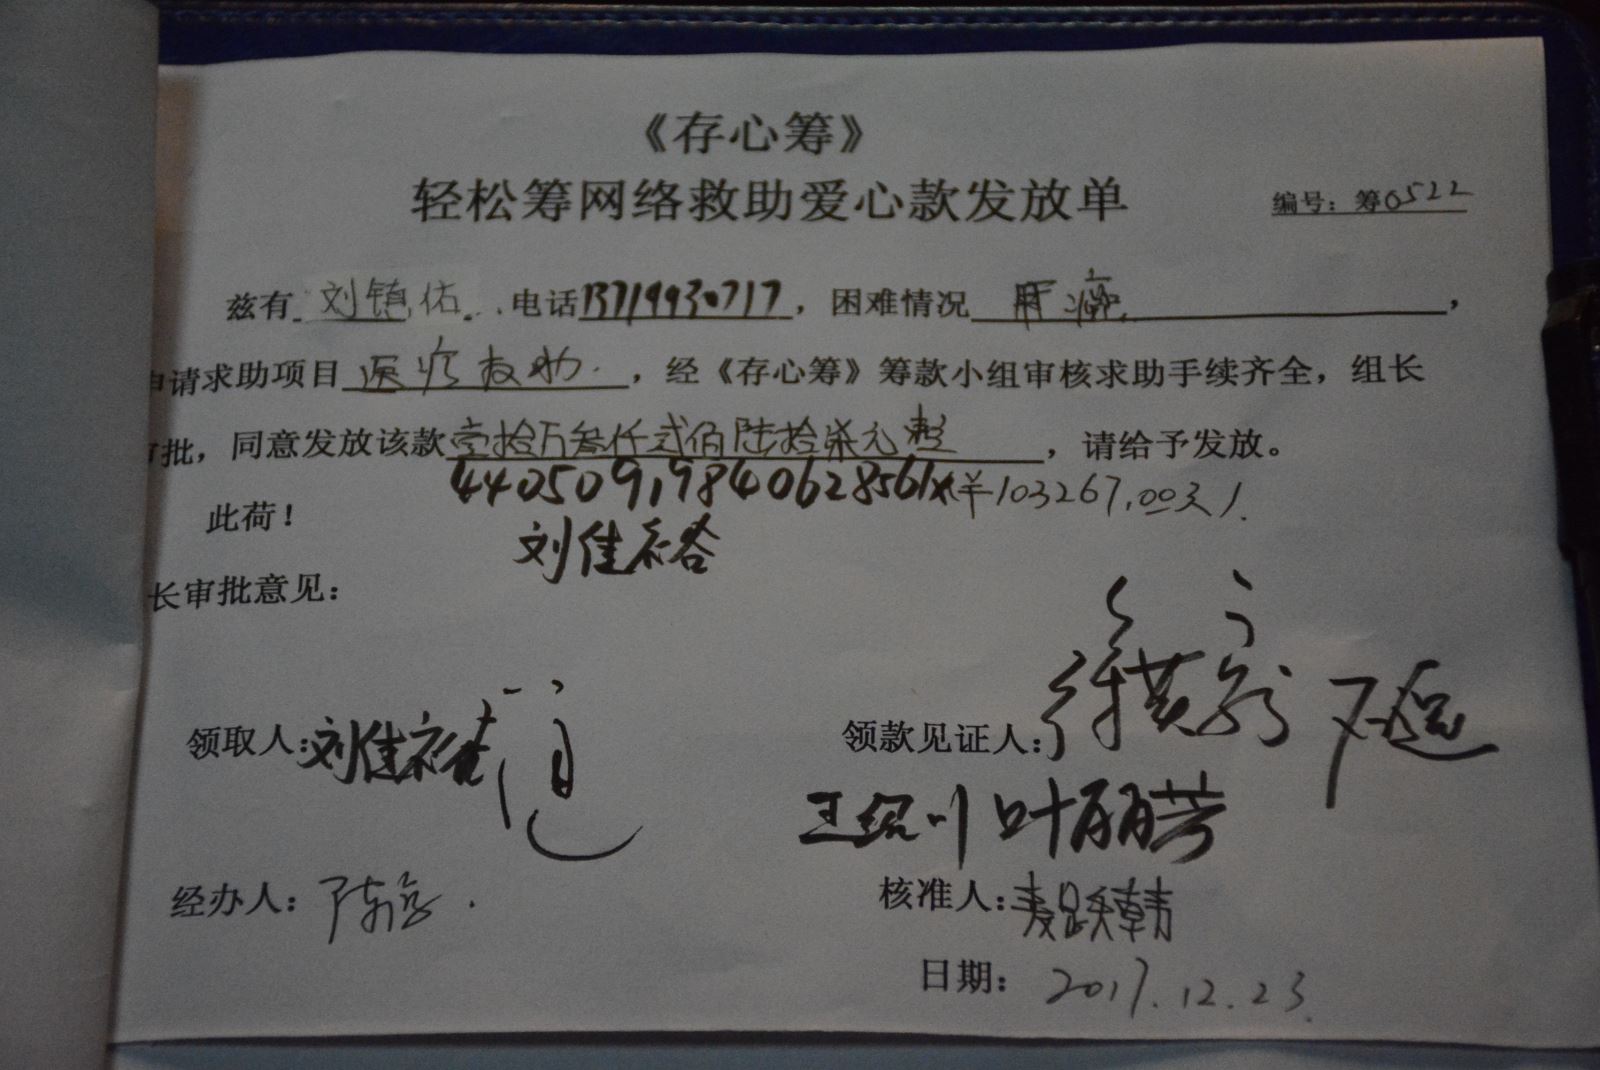 《存心筹》
轻松筹网络救助爱心款发放单
编号：筹0522
兹有 刘镇佑 电话13719930717，困难情况 肝癌，
申请求助项目 医疗救助，经《存心筹》筹款小组审核求助手续齐全，组长
审批，同意发放该款壹拾万叁仟贰佰陆拾柒元整，请给予发放。
¥103267.00元
此荷！
刘佳裕
长审批意见：
领取人：刘佳裕
领款见证人：
王绍川 叶丽芳
经办人：
核准人：
日期：2017.12.23